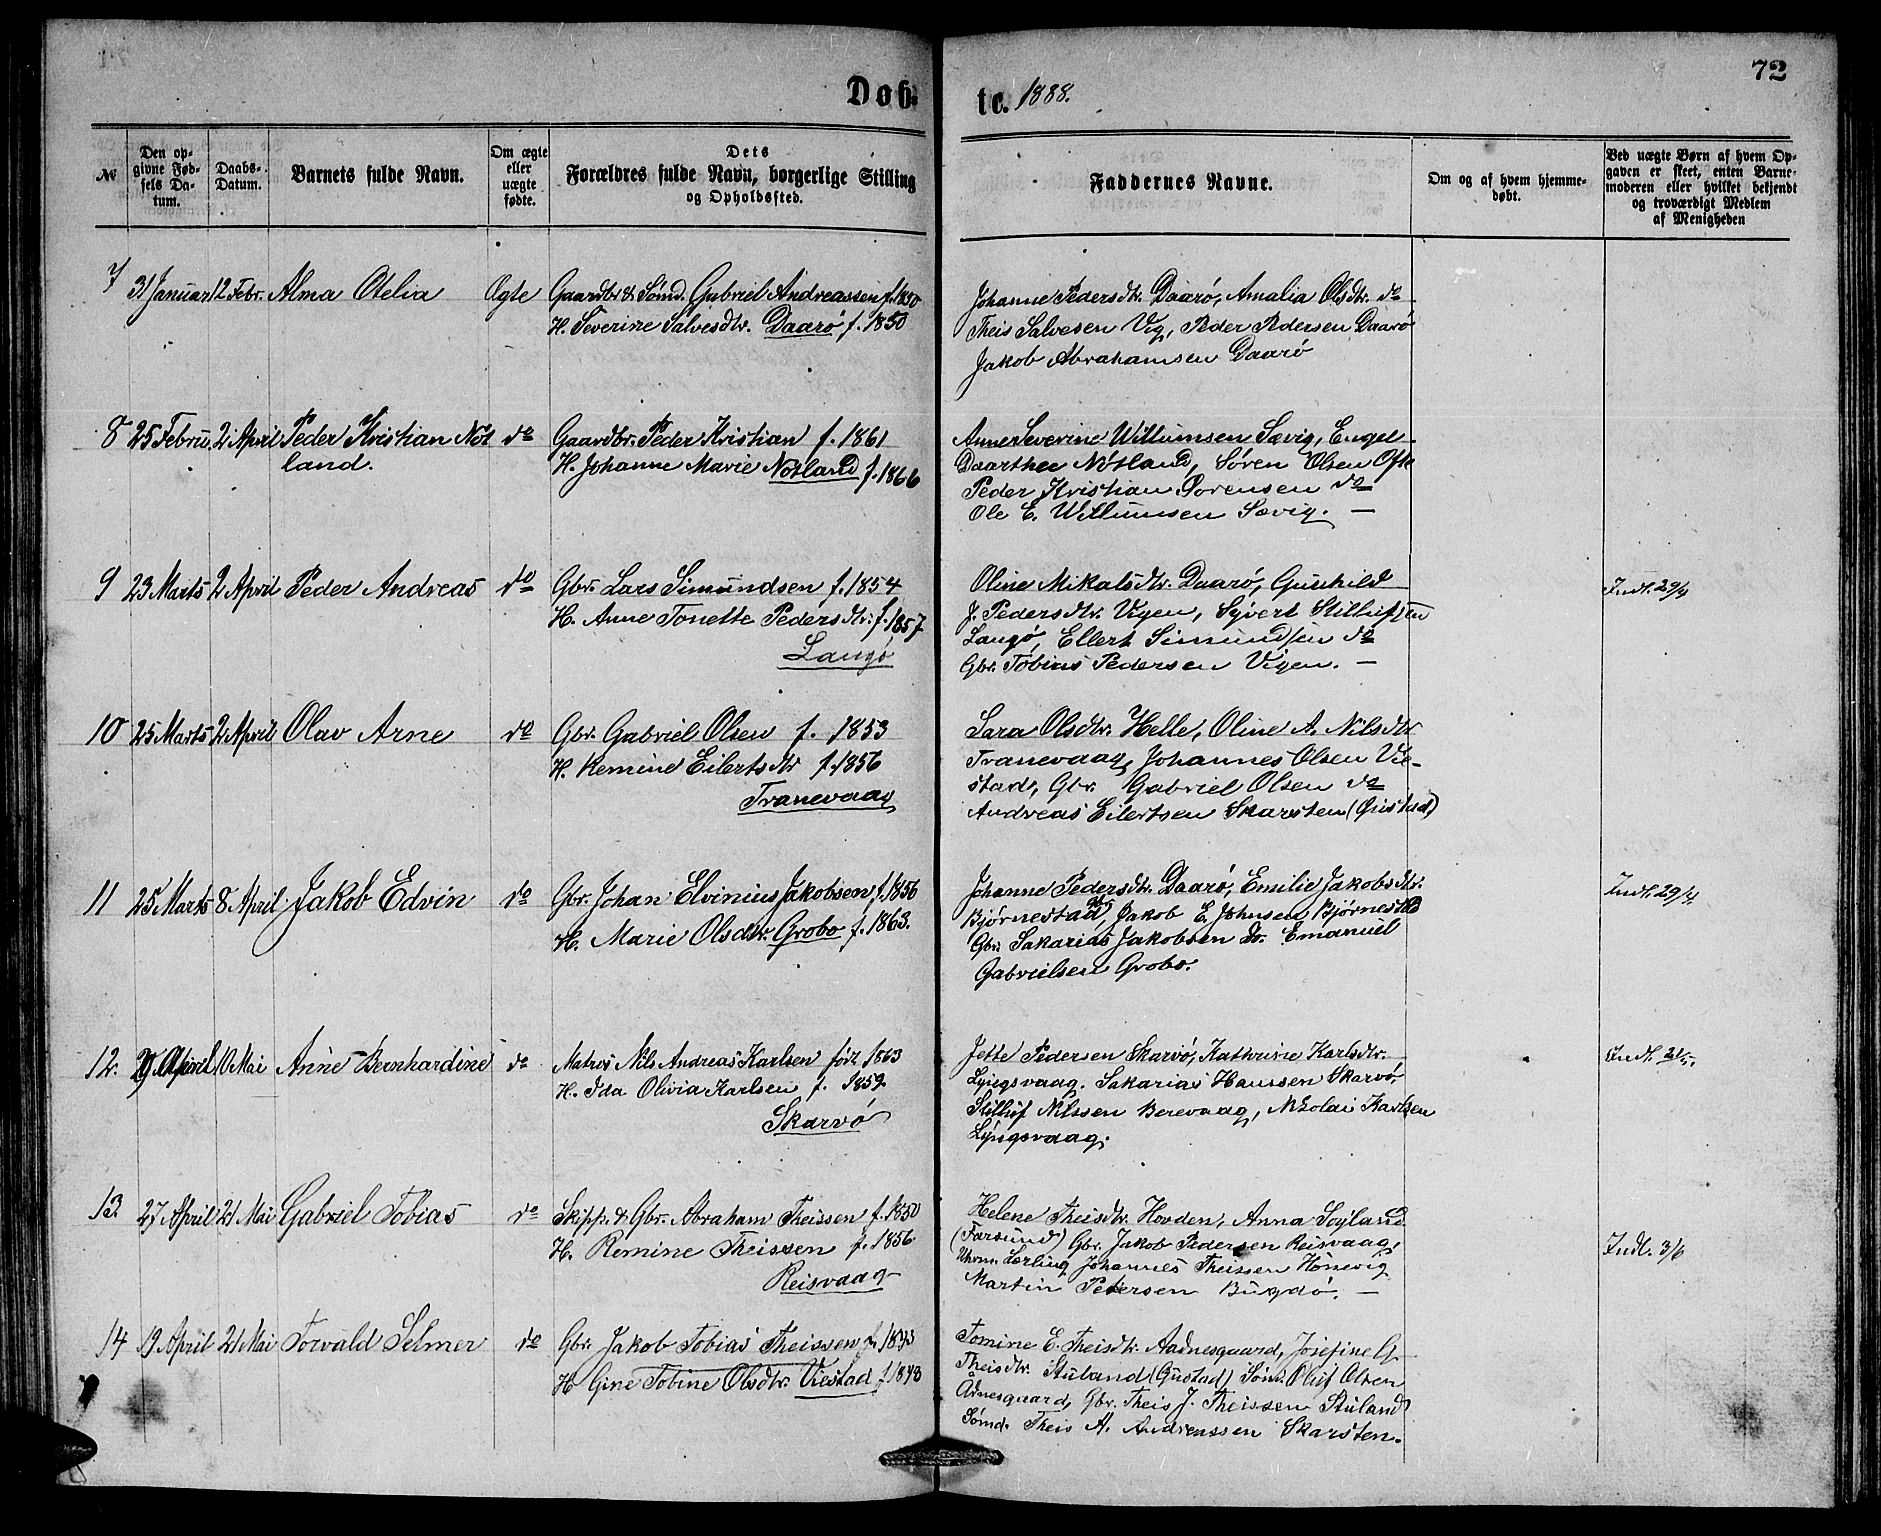 Døb-
te. 1888.
72
№
Den opgivne Fødsels Datum.
Daabs-Datum.
Barnets fulde Navn.
Om ægte eller uægte fødte.
Dets Forældres fulde Navn, borgerlige Stilling og Opholdssted.
Faddernes Navne.
Om og af hvem hjemmedøbt.
Ved uægte Børn af hvem Opgaven er skeet, enten Barnemoderen eller hvilket bekjendt og troværdigt Medlem af Menigheden
7 31 Januar 12 Febr. Alma Otelia Ægte Gaardbr. & Sømd. Gabriel Andreassen f. 1850
H. Severine Salvesdtr. Daarø f. 1850
Johanne Pedersdtr. Daarø, Amalia Olsdtr. do
Theis Salvesen Vig, Peder Pedersen Daarø
Jakob Abrahamsen Daarø
8 25 Febru. 2 April Peder Kristian Not
land.
do Gaardbr. Peder Kristian f. 1861
H. Johanne Marie Notland f. 1866
Anne Severine Willumsen Sævig, Engel
Daarthee Nøtland, Søren Olsen Ofte
Peder Kristian Sorensen do
Ole E. Willumsen Sævig. —
9 23 Marts 2 April Peder Andreas do Gbr. Lars Simundsen f. 1854
H. Anne Tonette Pedersdtr. f. 1857
Langø
Oline Mikalsdtr. Daarø, Gunhild
J. Pedersdtr. Vigen, Syvert Stillufsen
Langø, Ellert Simundsen do
Gbr. Tobias Pedersen Vigen. —
Indl. 29/4
10 25 Marts 2 April Olav Arne do Gbr. Gabriel Olsen f. 1853
H. Remine Eilertsdtr f. 1856
Tranevaag
Sara Olsdtr. Helle, Oline A. Nilsdtr
Tranevaag, Johannes Olsen Vie-
stad, Gbr. Gabriel Olsen do
Andreas Eilertsen Skarsten (Gustad)
11 25 Marts 8 April Jakob Edvin do Gbr. Johan Elvinius Jakobsen f. 1856
H. Marie Olsdtr. Grobo f. 1863.
Johanne Pedersdtr. Daarø, Emilie Jakobsdtr.
Bjørnestad, Gbr. Jakob E. Johnsen Bjørnestad
Gbr. Sakarias Jakobsen do. Emanuel
Gabrielsen Grobo.
Indl. 29/4
12. April 10 Mai Anne Bernhardine do Matros Nils Andreas Karlsen født 1863
H. Ida Olivia Karlsen f. 1859
Skarvø
Jette Pedersen Skarvø, Kathrine Karlsdtr.
Lyngsvaag. Sakarias Hanssen Skarvø,
Stilluf Nilssen Berevaag, Nikolai Karlsen
Lyngsvaag.
Indl. 21/5.
13. 27 April 21 Mai Gabriel Tobias do Skipp. & Gbr. Abraham Theissen f. 1850
H. Remine Theissen f. 1856
Reisvaag
Helene Theisdtr. Hovden, Anna Søyland
(Farsund) Gbr. Jakob Pedersen Reisvaag,
Uhrm. Lærling Johannes Theissen Hønevig
Martin Petersen Bugdø. —
Indl. 3/6
14 19 April 21 Mai Torvald Selmer do Gbr. Jakob Tobias Theissen f. 1843
H Gine Tobine Olsdtr. Viestad f 1843
Tomine E. Theisdtr. Aadnesgaard, Josefine G
Theisdtr. Stuland (Gustad) Sømd. Oluf Olsen
Adnesgaard, Gbr. Theis J. Theissen Stuland
Sømd. Theis A. Andreassen Skarsten.